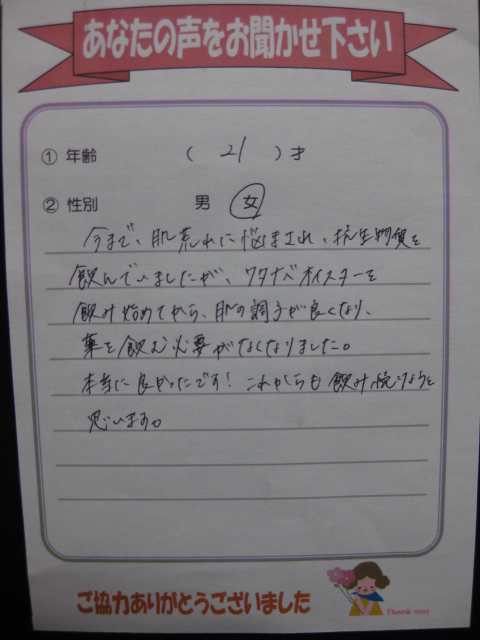 あなたの声をお聞かせ下さい
① 年齢 ( 21 ) 才
② 性別 男 女
今まで、肌荒れに悩まされ、抗生物質を
飲んでいましたが、ワタナベオイスターを
飲み始めてから、肌の調子が良くなり、
薬を飲む必要がなくなりました。
本当に良かったです! これからも飲み続けようと
思います。
ご協力ありがとうございました
Thank you